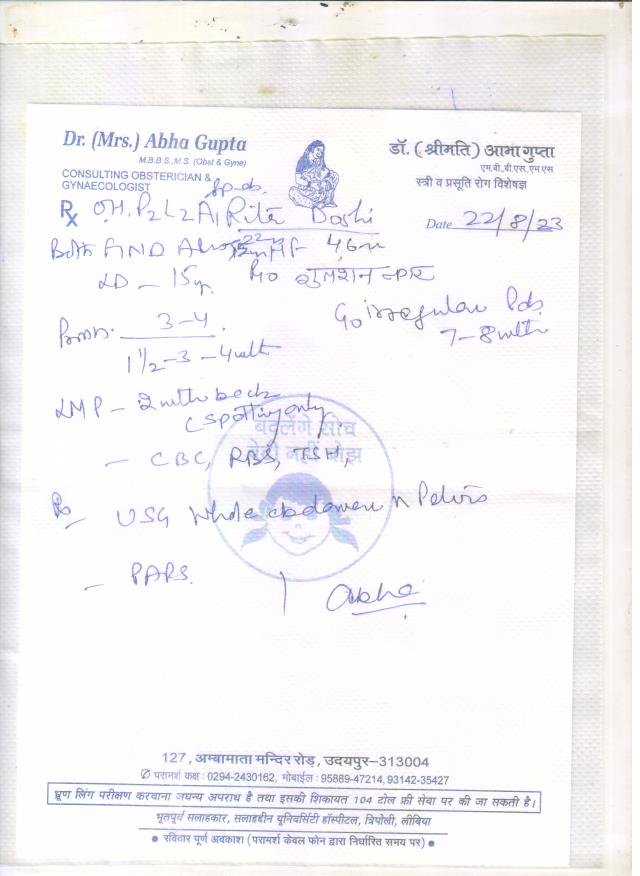 Dr. (Mrs.) Abha Gupta
M.B.B.S.,M.S. (Obst & Gyne)
CONSULTING OBSTERICIAN &
GYNAECOLOGIST
डॉ. (श्रीमति) आभा गुप्ता
एम.बी.बी.एस.,एम.एस
स्त्री व प्रसूति रोग विशेषज्ञ
Rx O.H. P2L2A1 Rita Doshi
Date 22/8/23
Both FTND
LD – 15 yr.
irregular Pds.
7–8 mth
3–4
1½–3–4 mth
LMP – 2 mth back
(spotting only
बदलेंगे सोच
बेटी नहीं बोझ
– CBC, RBS, TSH,
USG Whole abdomen n Pelvis
– PAPS.
Abha
127, अम्बामाता मन्दिर रोड़, उदयपुर–313004
परामर्श कक्ष : 0294-2430162, मोबाईल : 95889-47214, 93142-35427
भ्रूण लिंग परीक्षण करवाना जघन्य अपराध है तथा इसकी शिकायत 104 टोल फ्री सेवा पर की जा सकती है।
भूतपूर्व सलाहकार, सलाहदीन यूनिवर्सिटी हॉस्पीटल, त्रिपोली, लीबिया
● रविवार पूर्ण अवकाश (परामर्श केवल फोन द्वारा निर्धारित समय पर) ●